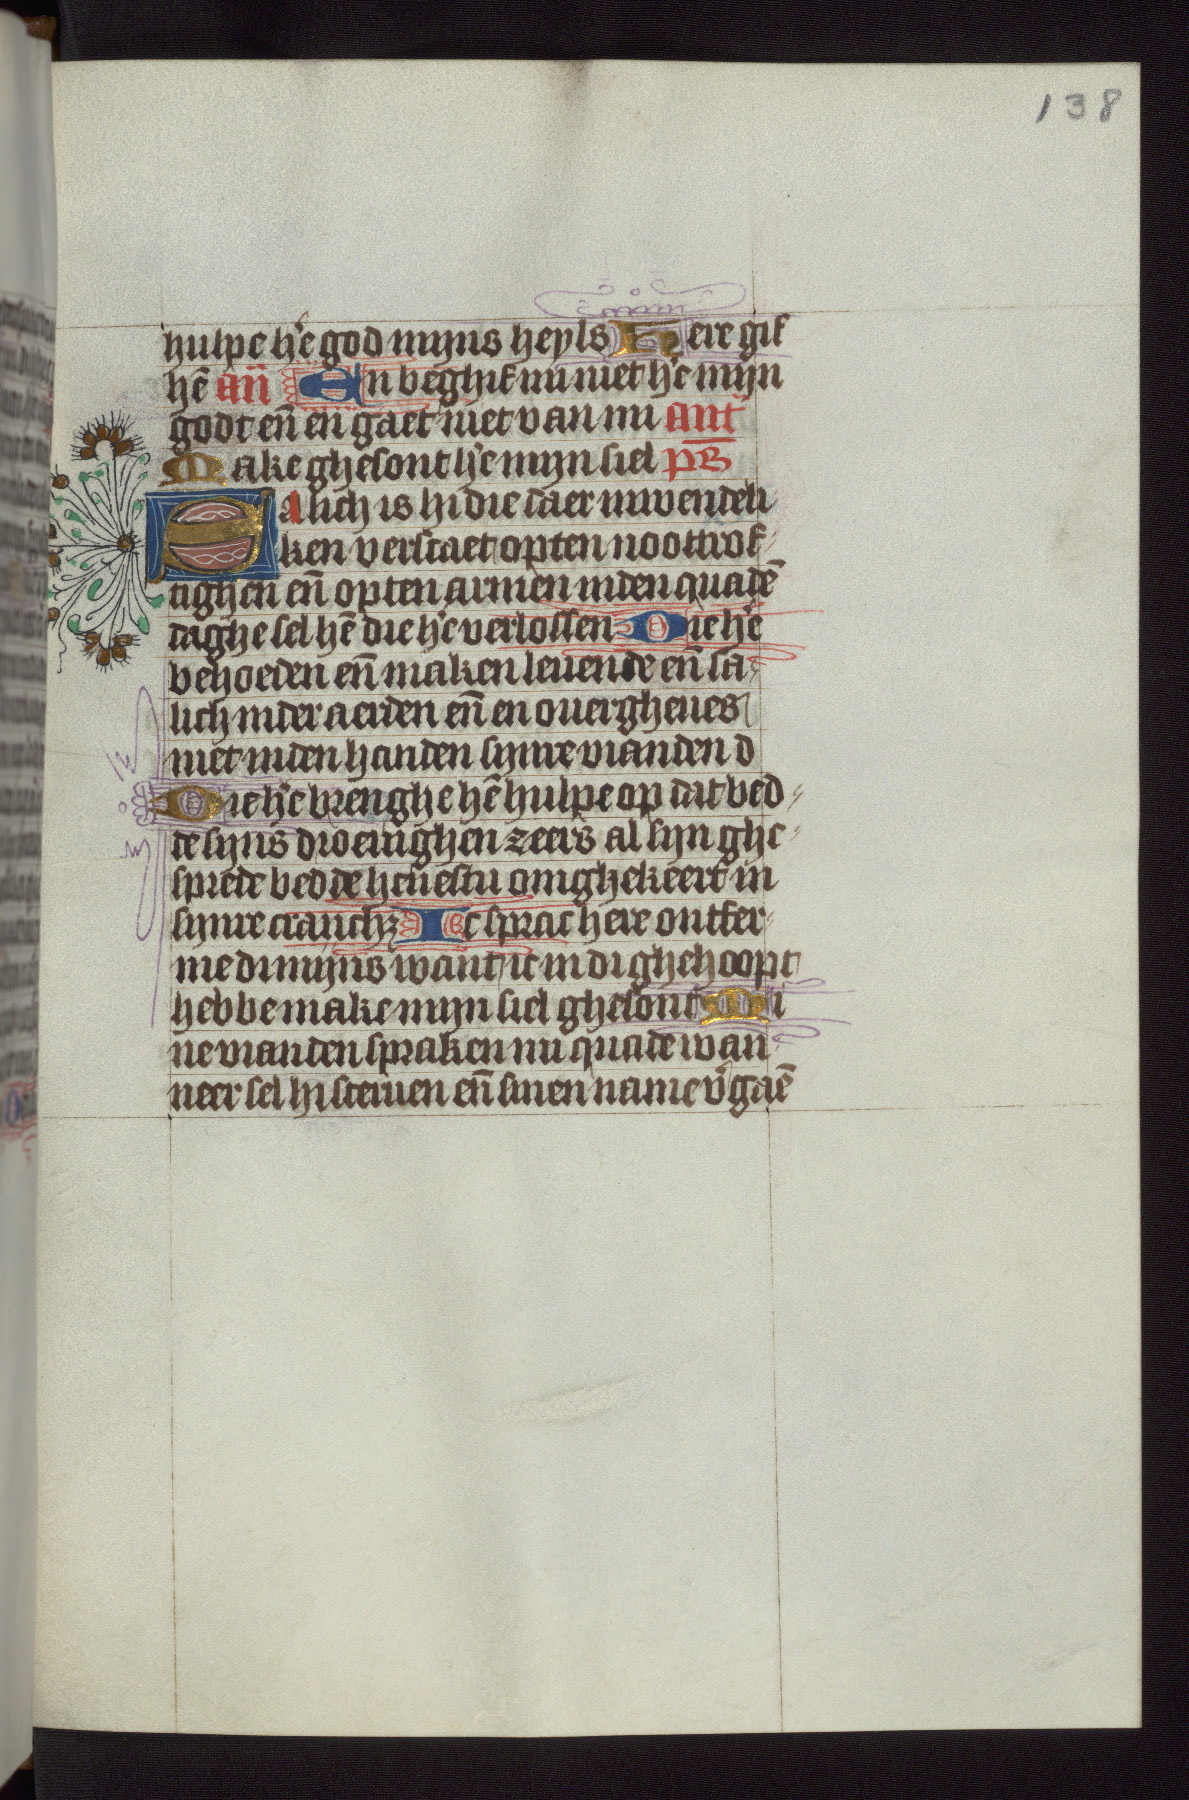 138
hulpe h'e god mijns heyls Here gif
hē an̄ En beghif mi niet h'e mijn
godt en̄ en gaet niet van mi ant
Make ghesont h'e mijn siel ps
Salich is hi die daer inwendeli
ken verstaet opten noottrof
tighen en̄ opten armen inden quadē
daghe sel hē die h'e verlossen Die h'e
behoeden en̄ maken leuende en̄ sa
lich inder aerden en̄ en ouergheues
niet inden handen sijnre vianden d
Die h'e brenghe hē hulpe op dat bed
de sijns droeuighen zeers al sijn ghe
sprede bedde heuestu omghekeert in
sijnre cranchz Ic sprac here ontfer
me di mijns want ic in di ghehoopt
hebbe make mijn siel ghesont Mi
ne vianden spraken mi quade wan
neer sel hi steruen en̄ sinen name v'gaē